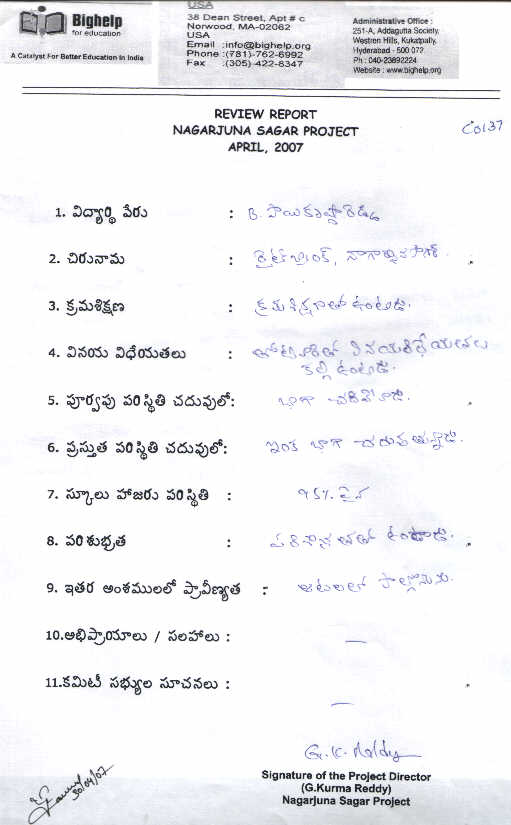 Bighelp
for education
A Catalyst For Better Education In India
USA
38 Dean Street, Apt # c
Norwood, MA-02062
USA
Email :info@bighelp.org
Phone :(781)-762-6992
Fax :(305)-422-8347
Administrative Office :
251-A, Addagutta Society,
Western Hills, Kukatpally,
Hyderabad - 500 072
Ph : 040-23892224
Website : www.bighelp.org
REVIEW REPORT
NAGARJUNA SAGAR PROJECT
APRIL, 2007
C0137
1. విద్యార్థి పేరు : B. సాయికృష్ణారెడ్డి
2. చిరునామ : రైట్‌బ్యాంక్, నాగార్జునసాగర్.
3. క్రమశిక్షణ : క్రమశిక్షణతో ఉంటాడు.
4. వినయ విధేయతలు : తోటివారితో వినయవిధేయతలు
కల్గి ఉంటాడు.
5. పూర్వపు పరిస్థితి చదువులో: బాగా చదివేవాడు.
6. ప్రస్తుత పరిస్థితి చదువులో: ఇంకా బాగా చదువుతున్నాడు.
7. స్కూలు హాజరు పరిస్థితి : 95% పైన
8. పరిశుభ్రత : పరిశుభ్రతతో ఉంటాడు.
9. ఇతర అంశములలో ప్రావీణ్యత : ఆటలలో పాల్గొనును.
10.అభిప్రాయాలు / సలహాలు : —
11.కమిటీ సభ్యుల సూచనలు : —
G. K. Reddy
Signature of the Project Director
(G.Kurma Reddy)
Nagarjuna Sagar Project
30/04/07